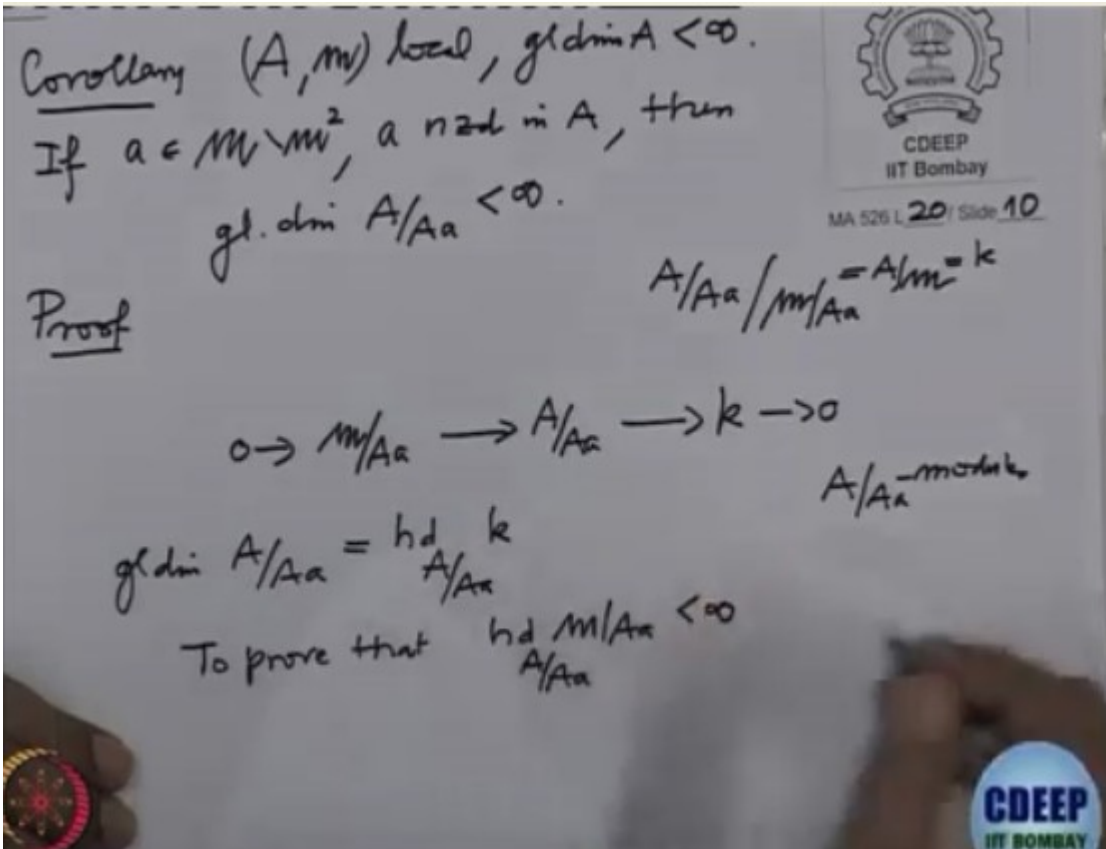 Corollary (A, m) local, gl dim A < ∞.
If a ∈ m \ m², a nzd in A, then
gl. dim A/Aa < ∞.
CDEEP
IIT Bombay
MA 526 L 20 / Slide 10
Proof
A/Aa / m/Aa = A/m = k
0 → m/Aa → A/Aa → k → 0
A/Aa-modules
gl dim A/Aa = hd k
A/Aa
To prove that hd m/Aa < ∞
A/Aa
CDEEP
IIT BOMBAY